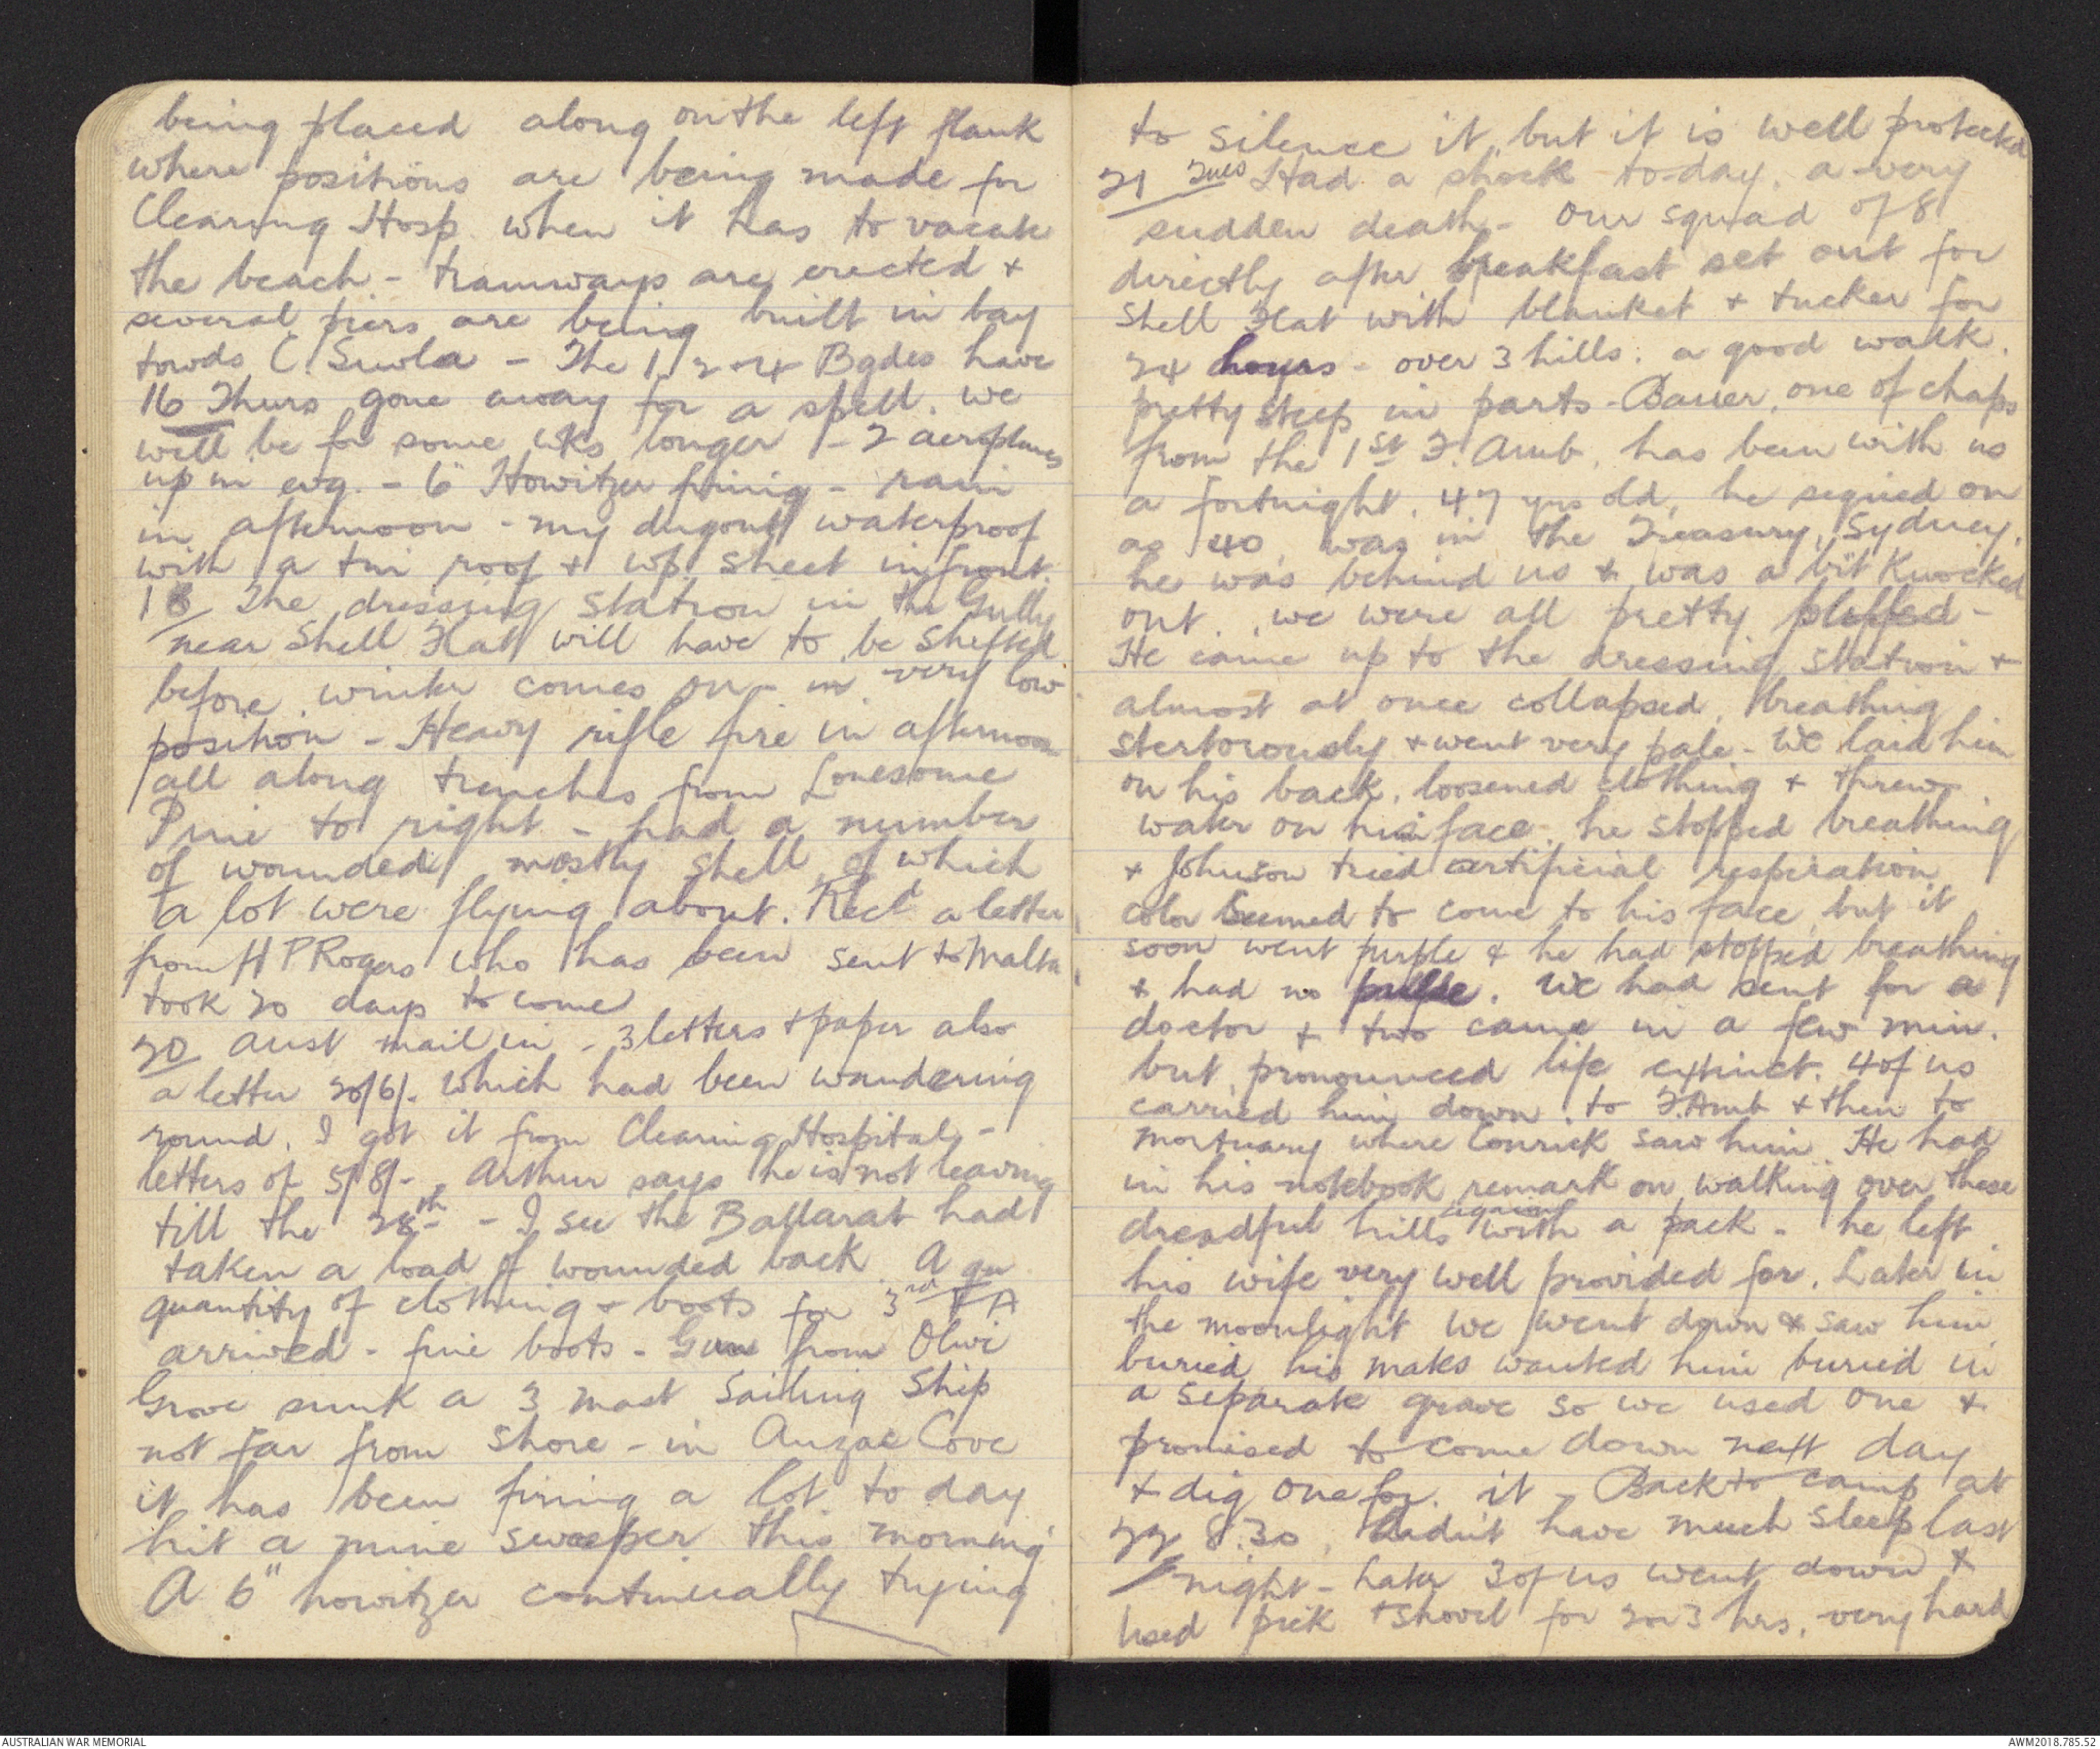 being placed along on the left flank
where positions are being made for
Clearing Hosp. when it has to vacate
the beach - tramways are erected +
several piers are being built in bay
towds C. Suvla - The 1, 2 + 4 Bgdes have
16 Thurs gone away for a spell. we
will be for some wks longer - 2 aeroplanes
up in evg. - 6" Howitzer firing - rain
in afternoon - my dugout waterproof
with a tin roof + wp. sheet in front.
18 The dressing station in the Gully
near Shell Flat will have to be shifted
before winter comes on - in very low
position - Heavy rifle fire in afternoon
all along trenches from Lonesome
Pine to right - had a number
of wounded mostly shell of which
a lot were flying about. Recd a letter
from H P Rogers who has been sent to Malta
took 20 days to come
20 Aust mail in - 3 letters + paper also
a letter 20/6/- which had been wandering
round. I got it from Clearing Hospital -
letters of 5/8/-. Arthur says he is not leaving
till the 28th - I see the Ballarat had
taken a load of wounded back. A qu
quantity of clothing + boots for 3rd FA
arrived - fine boots - Guns from Olive
Grove sunk a 3 mast sailing ship
not far from shore - in Anzac Cove
it has been firing a lot to day
hit a mine sweeper this morning
A 6" howitzer continually trying
to silence it, but it is well protected
21 Tues Had a shock to-day. a very
sudden death - our squad of 8
directly after breakfast set out for
Shell Flat with blanket + tucker for
24 hours - over 3 hills: a good walk.
pretty steep in parts - Bauer, one of chaps
from the 1st F. Amb, has been with us
a fortnight. 47 yrs old, he signed on
as 40, was in the Treasury, Sydney.
he was behind us + was a bit knocked
out. we were all pretty pluffed -
He came up to the dressing station +
almost at once collapsed, breathing
stertorously + went very pale - We laid him
on his back, loosened clothing + threw
water on his face. he stopped breathing
+ Johnson tried artificial respiration
color seemed to come to his face but it
soon went purple & he had stopped breathing
+ had no pulse. We had sent for a
doctor + two came in a few min.
but pronounced life extinct. 4 of us
carried him down to F. Amb + then to
mortuary where Conrick saw him. He had
in his notebook remark on walking over these
dreadful hills again with a pack - he left
his wife very well provided for. Later in
the moonlight we went down & saw him
buried, his mates wanted him buried in
a separate grave so we used one +
promised to come down next day
+ dig one for it - Back to camp at
22 8.30, hadn't have much sleep last
night - Later 3 of us went down +
used pick + shovel for 2 or 3 hrs, very hard
AUSTRALIAN WAR MEMORIAL
AWM2018.785.52